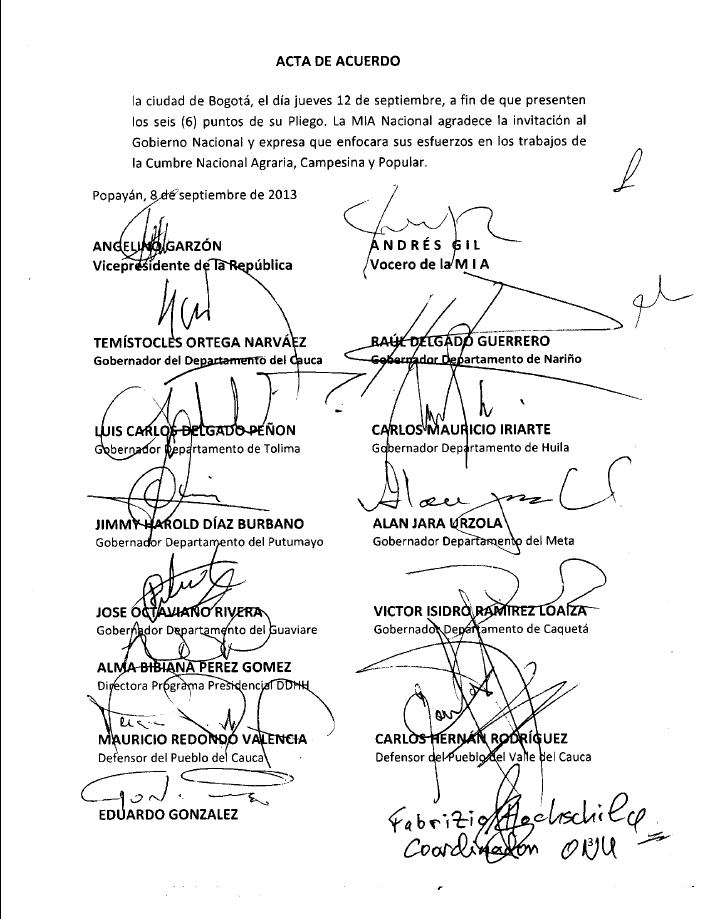 ACTA DE ACUERDO
la ciudad de Bogotá, el día jueves 12 de septiembre, a fin de que presenten
los seis (6) puntos de su Pliego. La MIA Nacional agradece la invitación al
Gobierno Nacional y expresa que enfocara sus esfuerzos en los trabajos de
la Cumbre Nacional Agraria, Campesina y Popular.
Popayán, 8 de septiembre de 2013
ANGELINO GARZÓN
Vicepresidente de la República
ANDRÉS GIL
Vocero de la MIA
TEMÍSTOCLES ORTEGA NARVÁEZ
Gobernador del Departamento del Cauca
RAÚL DELGADO GUERRERO
Gobernador Departamento de Nariño
LUIS CARLOS DELGADO PEÑON
Gobernador Departamento de Tolima
CARLOS MAURICIO IRIARTE
Gobernador Departamento de Huila
JIMMY HAROLD DÍAZ BURBANO
Gobernador Departamento del Putumayo
ALAN JARA URZOLA
Gobernador Departamento del Meta
JOSE OCTAVIANO RIVERA
Gobernador Departamento del Guaviare
VICTOR ISIDRO RAMIREZ LOAIZA
Gobernador Departamento de Caquetá
ALMA BIBIANA PEREZ GOMEZ
Directora Programa Presidencial DDHH
MAURICIO REDONDO VALENCIA
Defensor del Pueblo del Cauca
CARLOS HERNÁN RODRÍGUEZ
Defensor del Pueblo del Valle del Cauca
EDUARDO GONZALEZ
Fabrizio Hochschild
Coordinador ONU